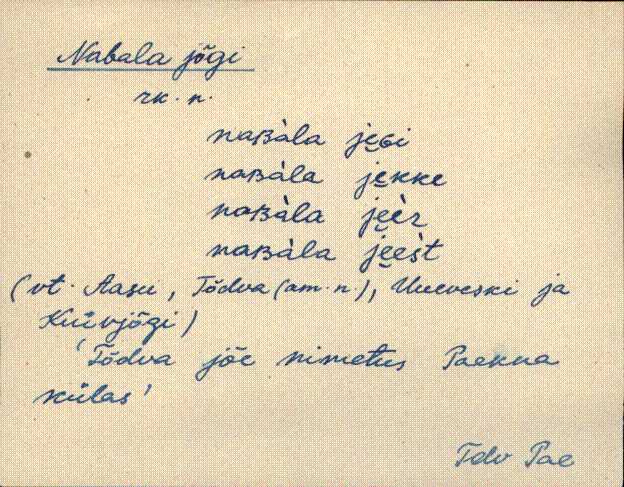 Nabala jõgi
rk. n.
naʙàla je̮ɢi
naʙàla je̮kke
naʙàla je̮èr
naʙàla je̮èst
(vt. Aasu, Tõdva (am. n.), Uueveski ja
Kuivjõgi)
'Tõdva jõe nimetus Paekna
külas'
Tdv Pae